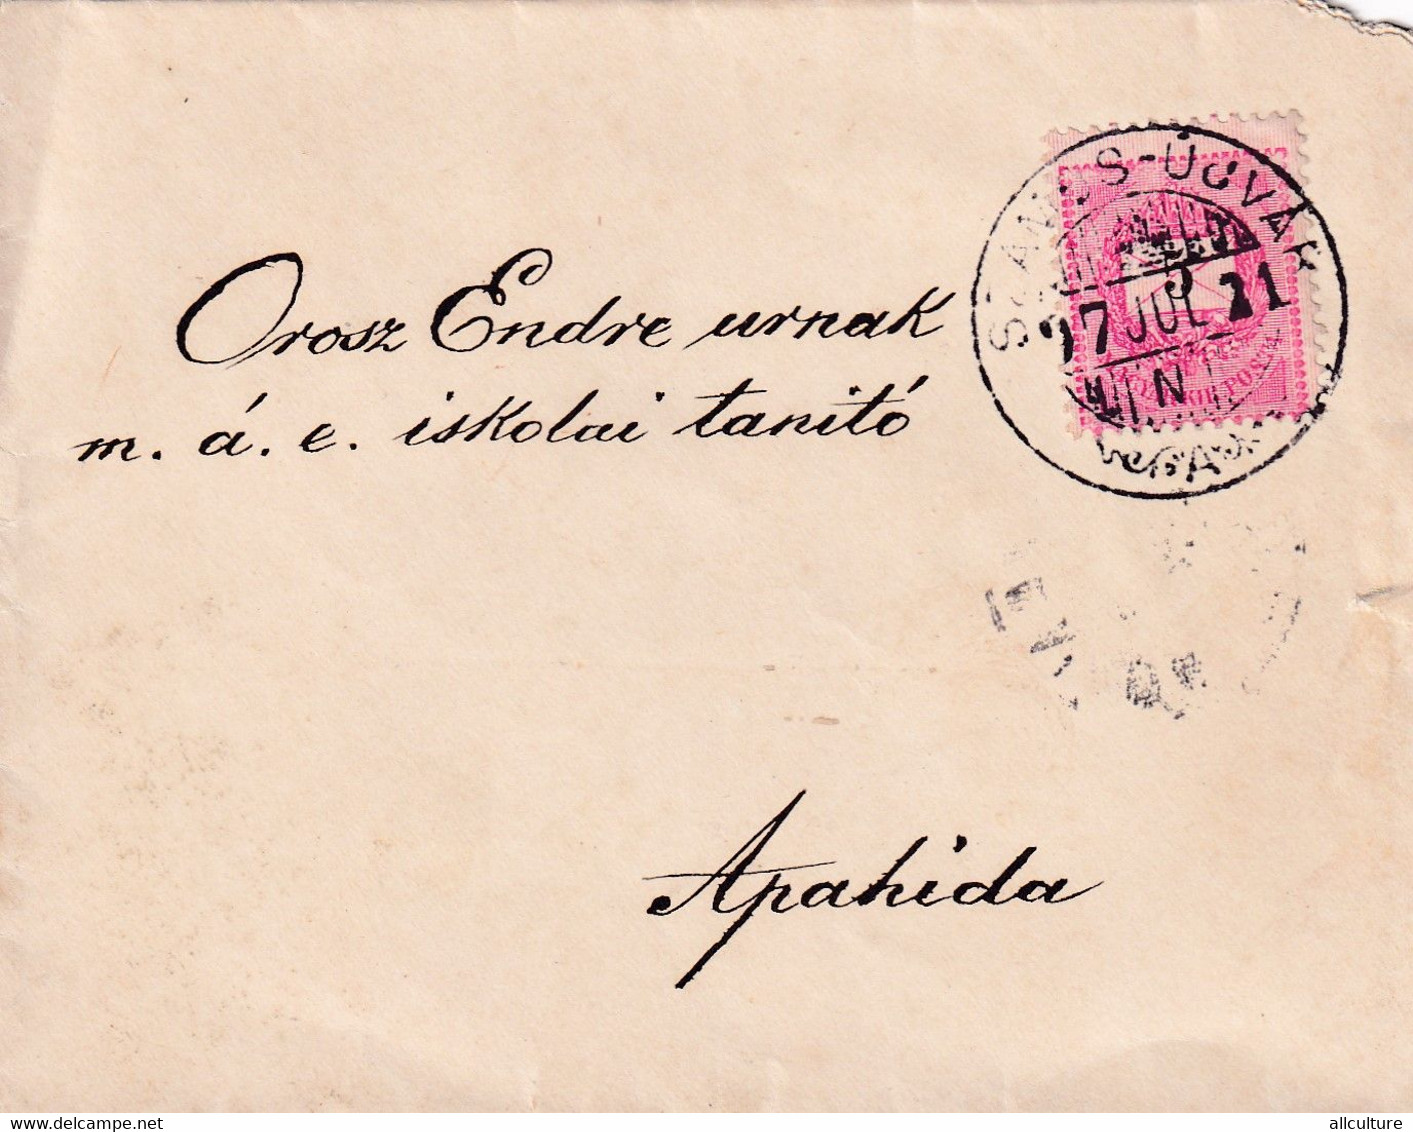 SZAMOS-ÚJVÁR
97 JUL 21
N 1
MAGY. KIR. POSTA
Orosz Endre urnak
m. á. e. iskolai tanitó
Apahida
www.delcampe.net
allculture